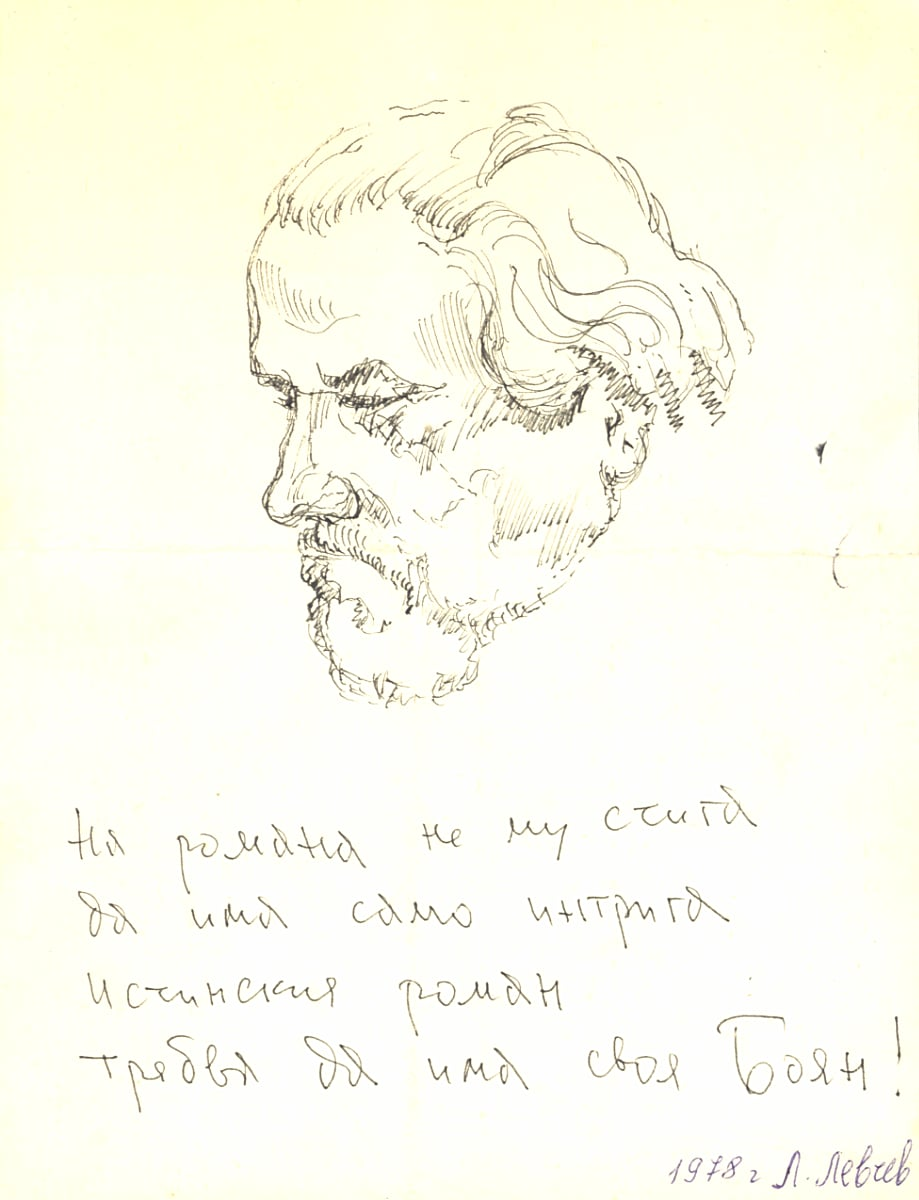 На романа не му стига
да има само интрига
истинския роман
трябва да има своя Боян!
1978 г Л. Левчев